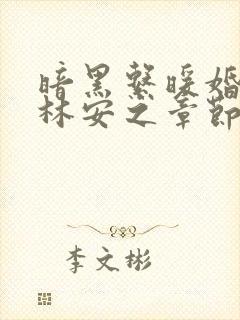 暗黑系暖婚
林安之章節
李文彬